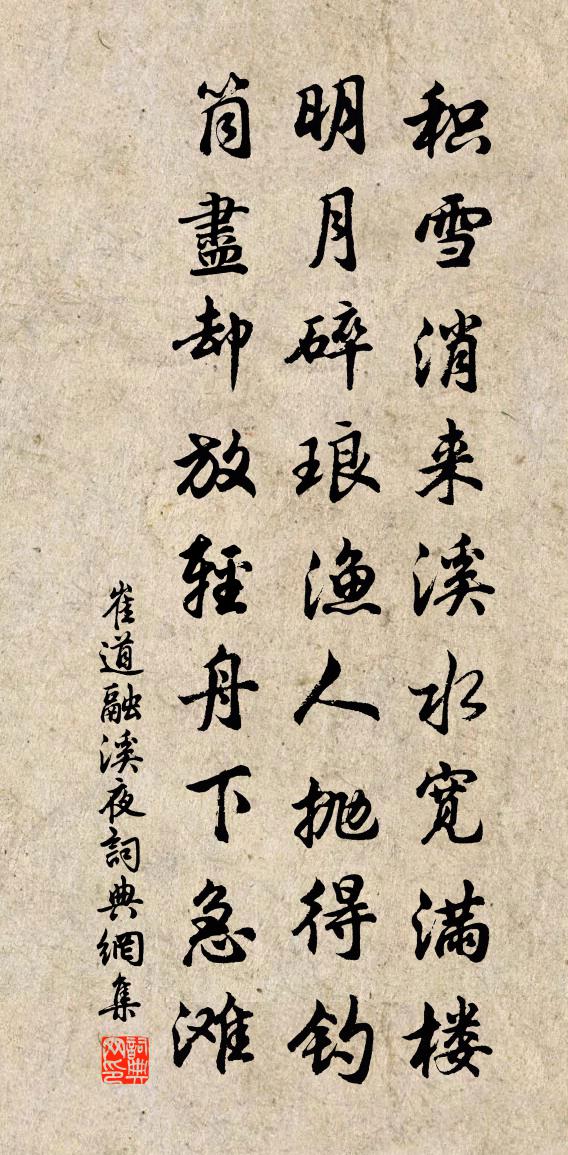 积雪消来溪水寬满楼
明月碎琅渔人抛得钓
筒盡却放輕舟下急滩
崔道融溪夜詞典網集
詞典网印